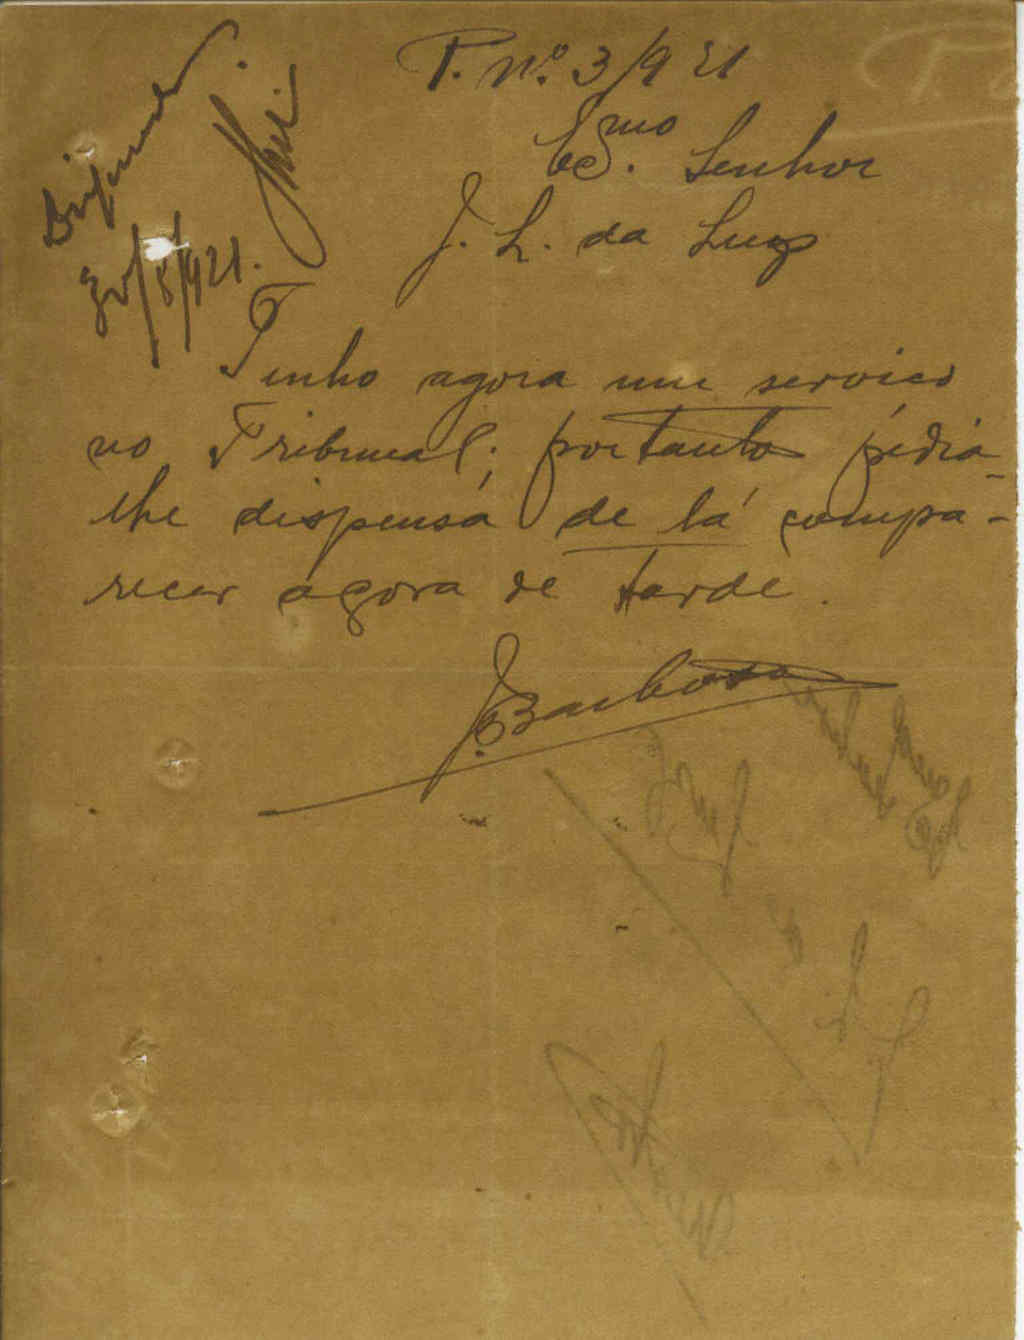 P. nº 3/921
Exmo. Senhor
J. L. da Luz
30/8/921.
Tenho agora um serviço
no Tribunal; portanto pedia-
lhe dispensa de lá compa-
recer agora de tarde.
J. Barbosa